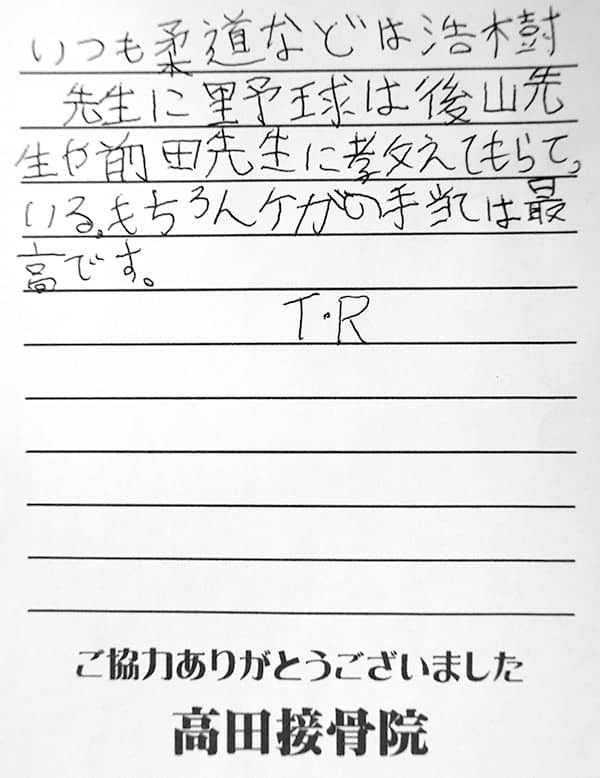 いつも柔道などは浩樹
先生に野球は後山先
生や前田先生に教えてもらって、
いる。もちろんケガの手当ては最
高です。
T・R
ご協力ありがとうございました
高田接骨院